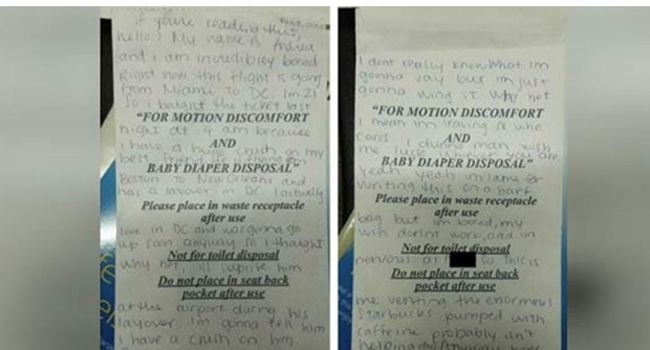 if you're reading this,
hello! My name is Andrea
and I am incredibly bored
Right now this flight is going
from Miami to DC. Im 21
so I bought the ticket last
"FOR MOTION DISCOMFORT
night at 4 am because
AND
I have a huge crush on my
best friend. He is flying from
BABY DIAPER DISPOSAL"
Boston to New Orleans and
has a layover in DC. I actually
Please place in waste receptacle
after use
live in DC and was gonna go
up soon anyway so I thought
Not for toilet disposal
why not, I'll suprise him
Do not place in seat back
pocket after use
at the airport during his
layover. I'm gonna tell him
I have a crush on him
I dont really know what im
gonna say but im just
gonna wing it. Why not
"FOR MOTION DISCOMFORT
I mean im leaving so who
AND
cares. I dunno man wish
me luck whoever you are.
BABY DIAPER DISPOSAL"
yeah yeah im lame for
writing this on a barf
Please place in waste receptacle
after use
bag but im bored, my
wifi doesnt work, and im
Not for toilet disposal
nervous as so this is
Do not place in seat back
pocket after use
me venting the enormous
starbucks pumped with
caffeine probably isn't
helping